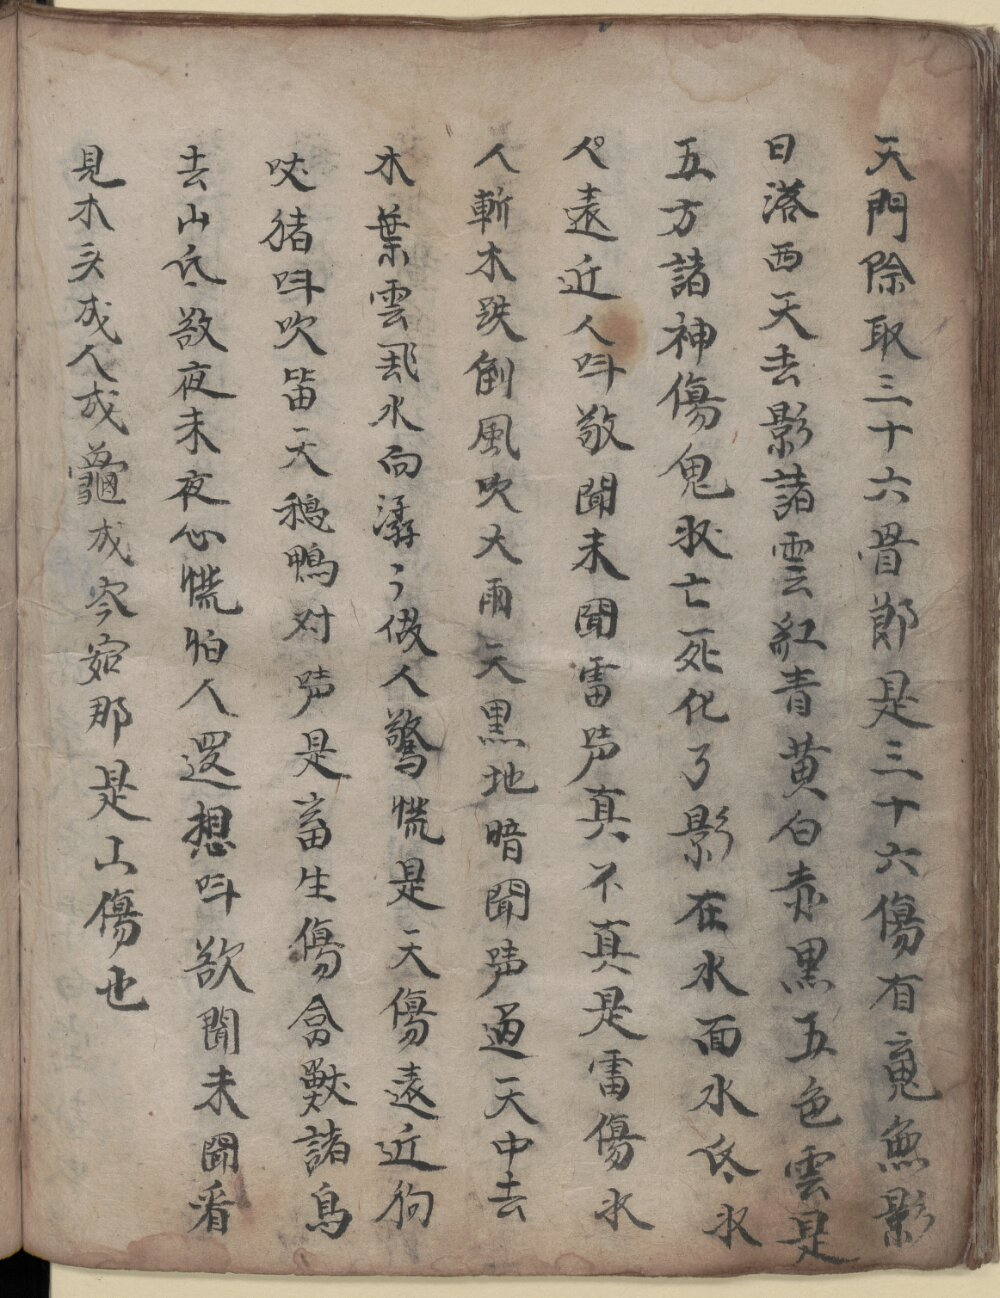 天門除取三十六骨郎是三十六傷有鬼魚影
日落西天去影諸雲紅青黃白赤黑五色雲是
五方諸神傷鬼水亡死化了影在水面水低水
遠近人呌敬聞未聞雷声真不真是雷傷水
人斬木跌倒風吹大雨天黑地暗聞声過天中去
木葉雲亂水向潺々做人驚慌是天傷遠近狗
吠猪呌吹笛天鵝鴨对声是畜生傷禽獸諸鳥
去山低敬夜未夜心慌怕人還想呌欲聞未聞看
見木头成人成龜成岑宕那是山傷也